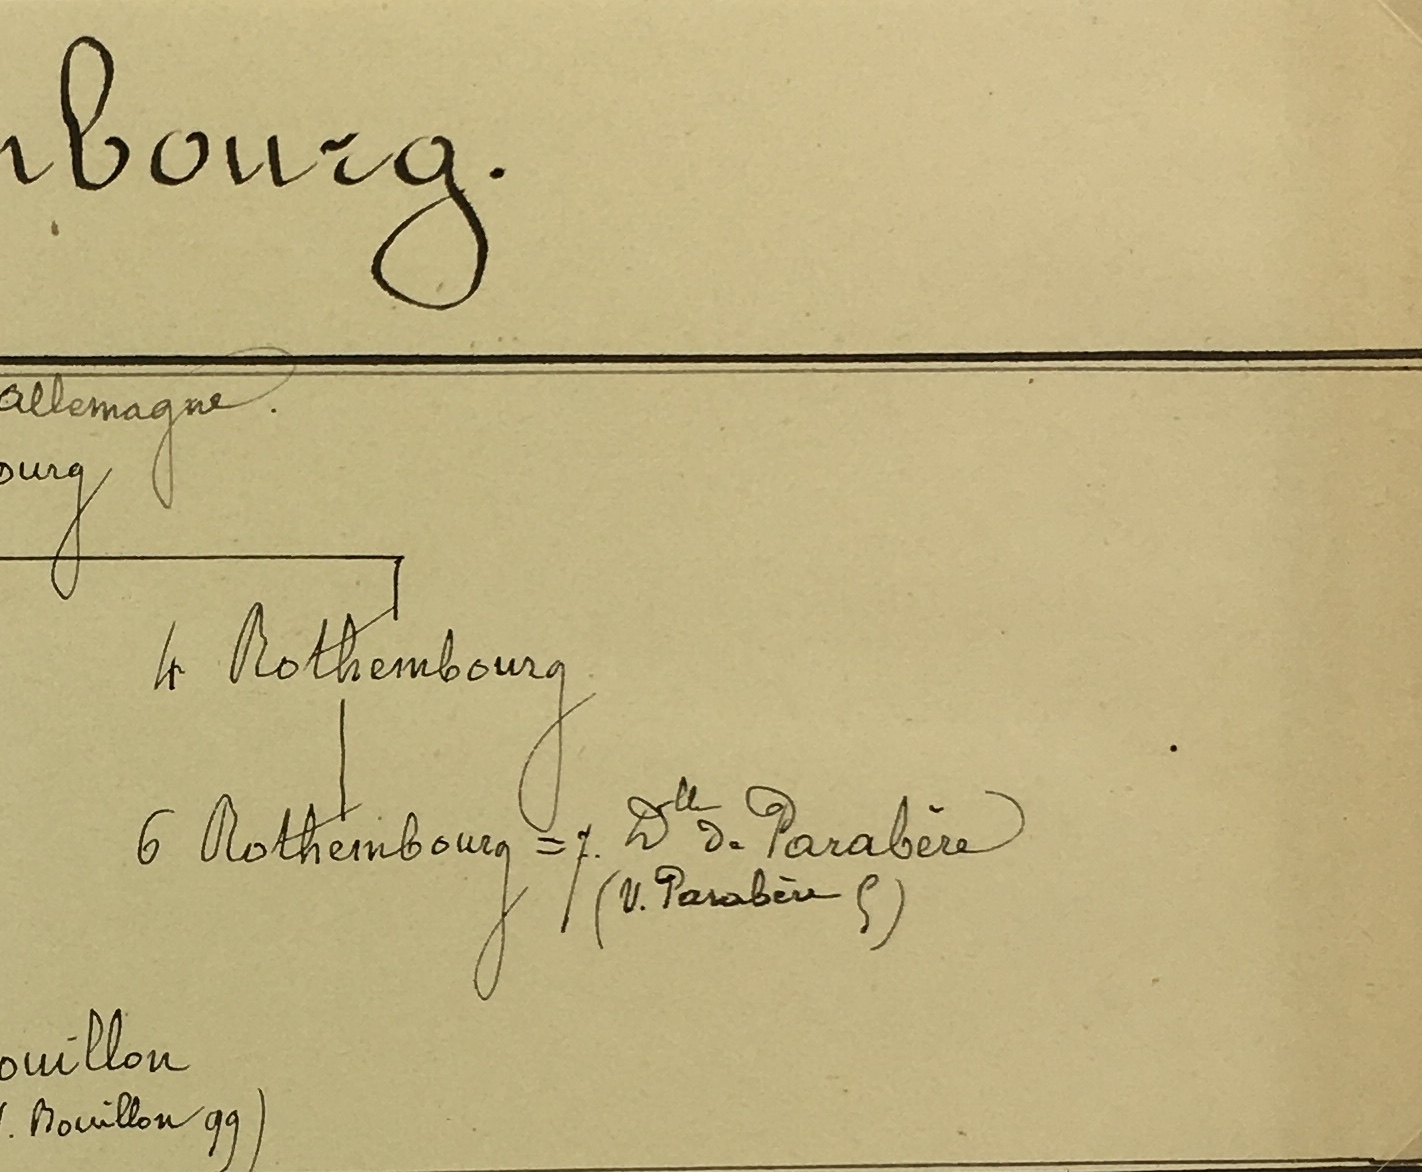 nbourg.
allemagne.
ourg
4 Rothembourg
6 Rothembourg = 7. Dlle de Parabère
(V. Parabère ς)
ouillon
V. Bouillon 99)